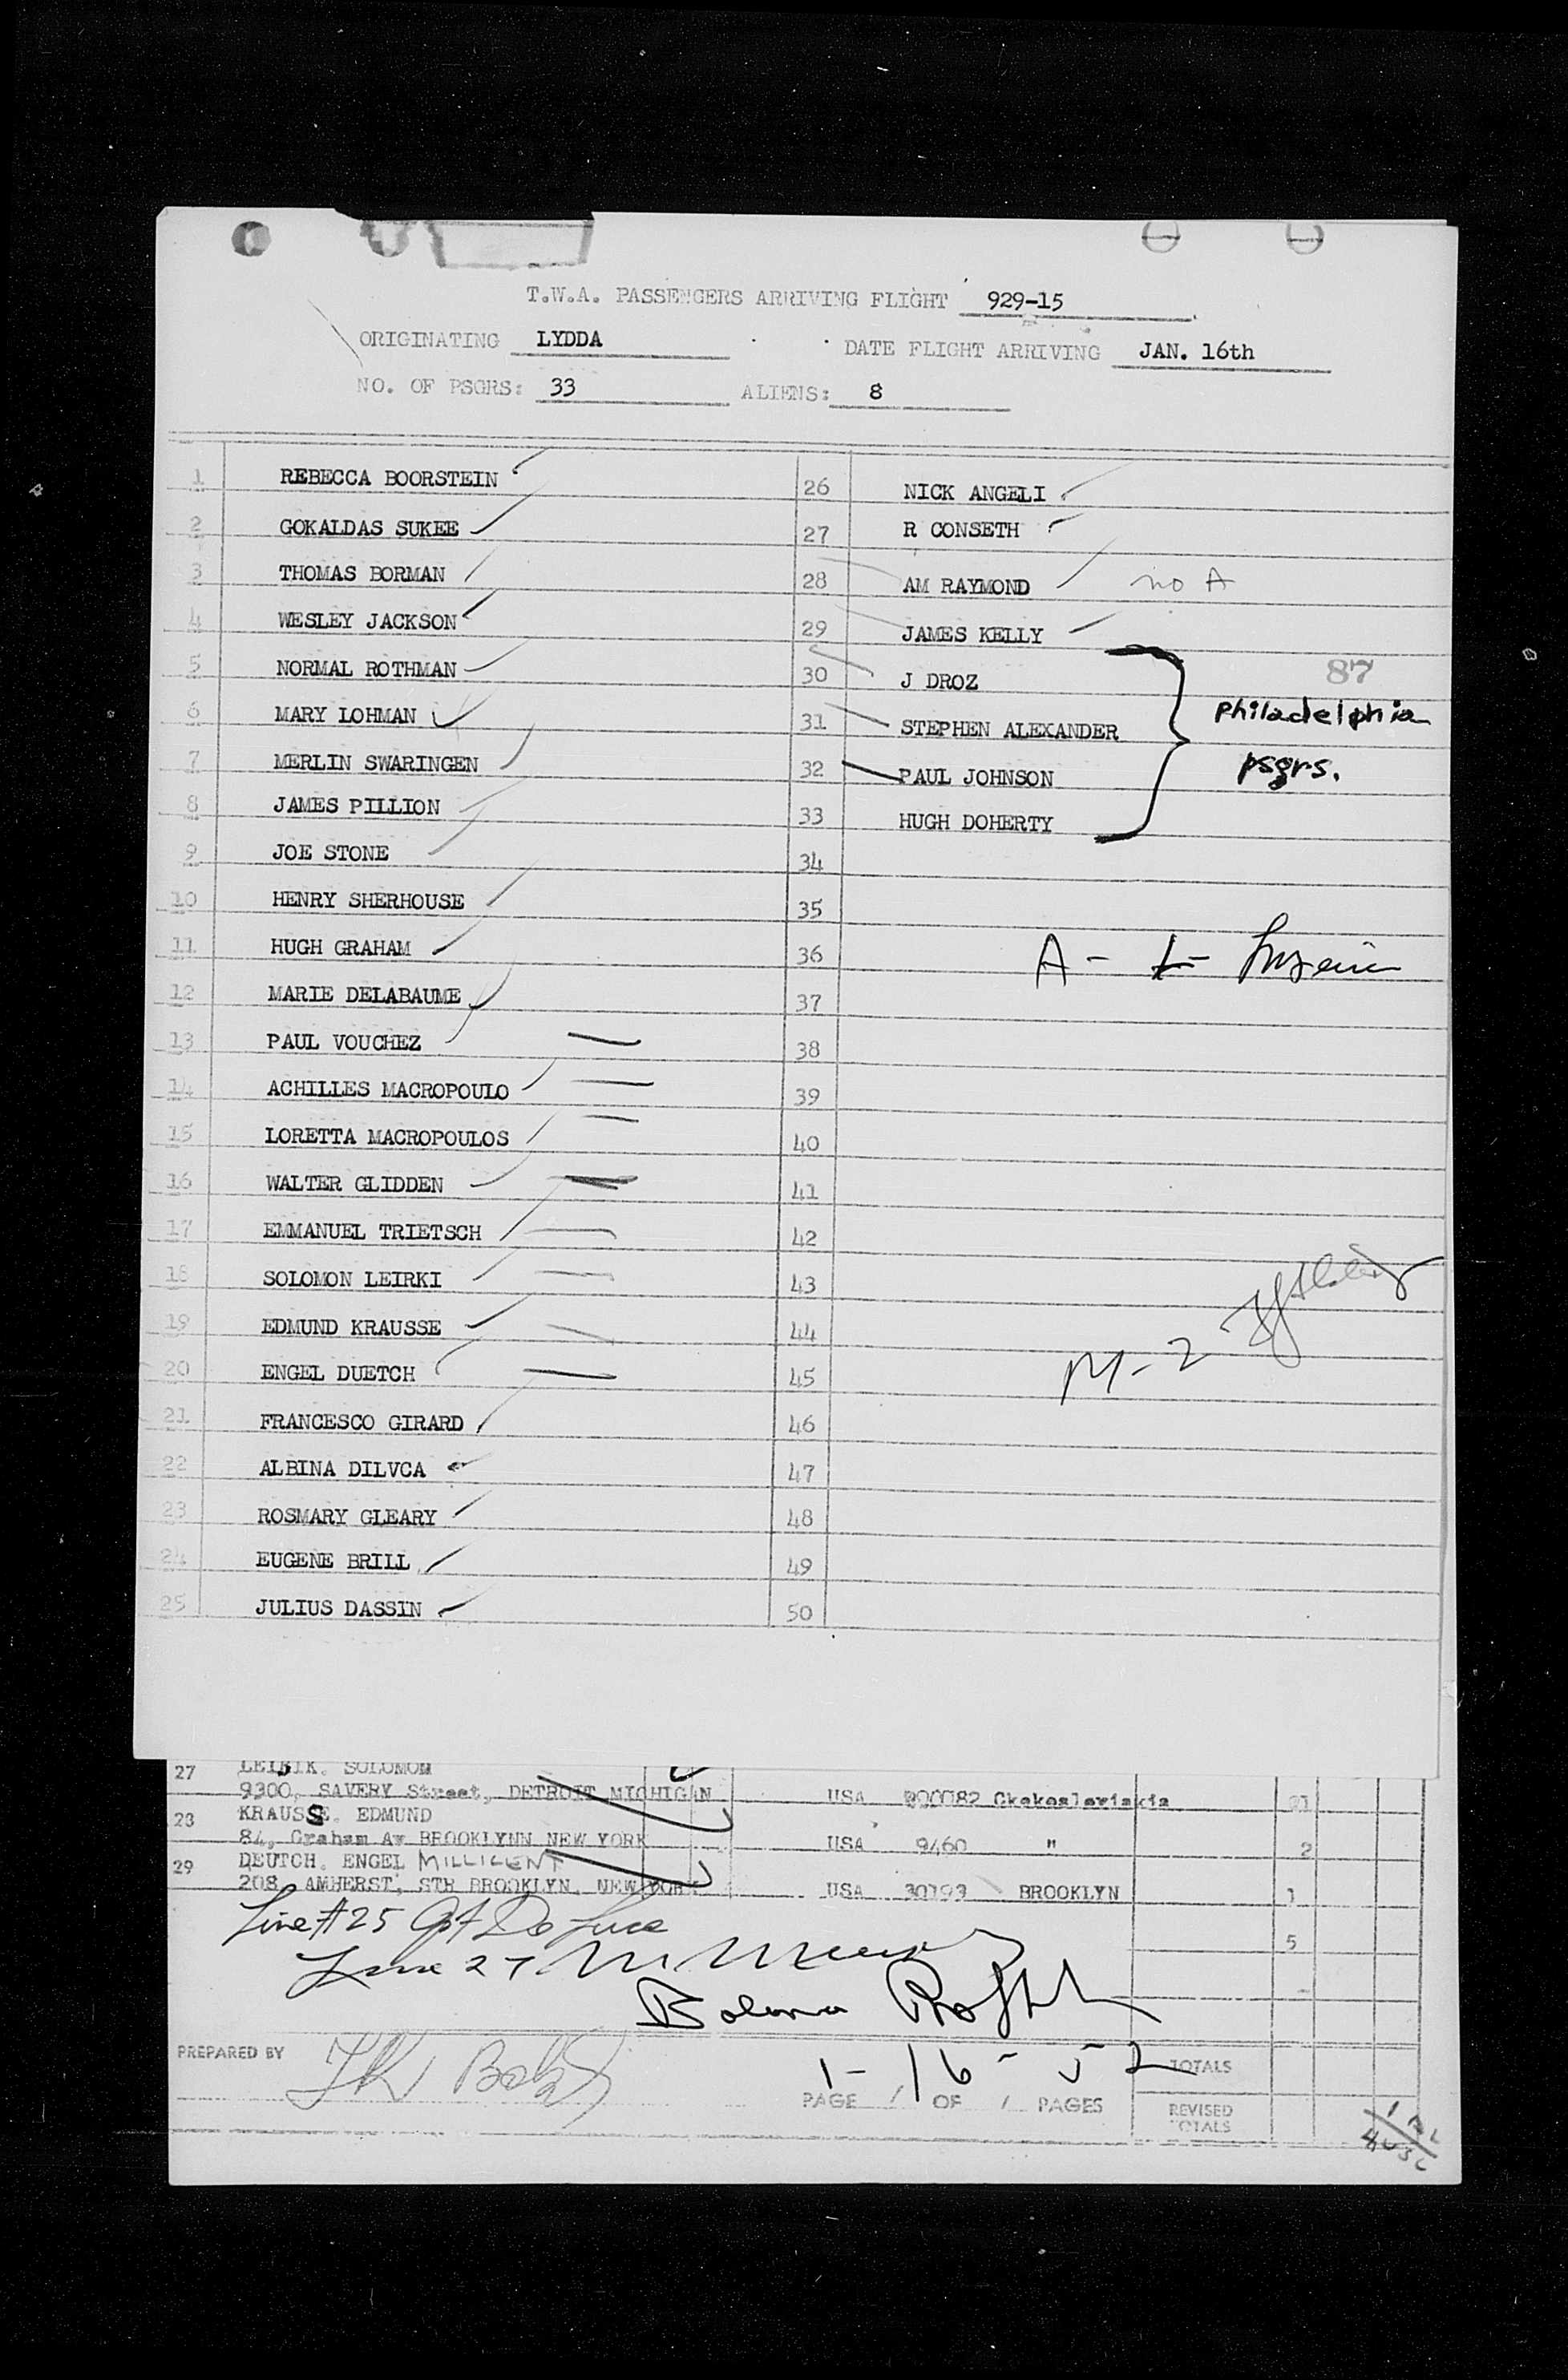 T.W.A. PASSENGERS ARRIVING FLIGHT 929-15
ORIGINATING LYDDA DATE FLIGHT ARRIVING JAN. 16th
NO. OF PSGRS: 33 ALIENS: 8
1 REBECCA BOORSTEIN
2 GOKALDAS SUKEE
3 THOMAS BORMAN
4 WESLEY JACKSON
5 NORMAL ROTHMAN
6 MARY LOHMAN
7 MERLIN SWARINGEN
8 JAMES PILLION
9 JOE STONE
10 HENRY SHERHOUSE
11 HUGH GRAHAM
12 MARIE DELABAUME
13 PAUL VOUCHEZ
14 ACHILLES MACROPOULO
15 LORETTA MACROPOULOS
16 WALTER GLIDDEN
17 EMMANUEL TRIETSCH
18 SOLOMON LEIRKI
19 EDMUND KRAUSSE
20 ENGEL DUETCH
21 FRANCESCO GIRARD
22 ALBINA DILVCA
23 ROSMARY GLEARY
24 EUGENE BRILL
25 JULIUS DASSIN
26 NICK ANGELI
27 R CONSETH
28 AM RAYMOND no A
29 JAMES KELLY
30 J DROZ 87
31 STEPHEN ALEXANDER Philadelphia
32 PAUL JOHNSON psgrs.
33 HUGH DOHERTY
34
35
36 A -
37
38
39
40
41
42
43
44
45 M - 2
46
47
48
49
50
27 SOLOMON
9300, SAVERY Street, DETROIT MICHIGAN USA
28 KRAUSSE. EDMUND
84, Graham Av BROOKLYNN NEW YORK USA 9460 " 2
29 DEUTCH. ENGEL MILLICENT
208, AMHERST, STR BROOKLYN, NEW YORK USA 30793 BROOKLYN 1
Line #25
5
Line 27
PREPARED BY
1-16-52 TOTALS
PAGE 1 OF 1 PAGES
REVISED TOTALS